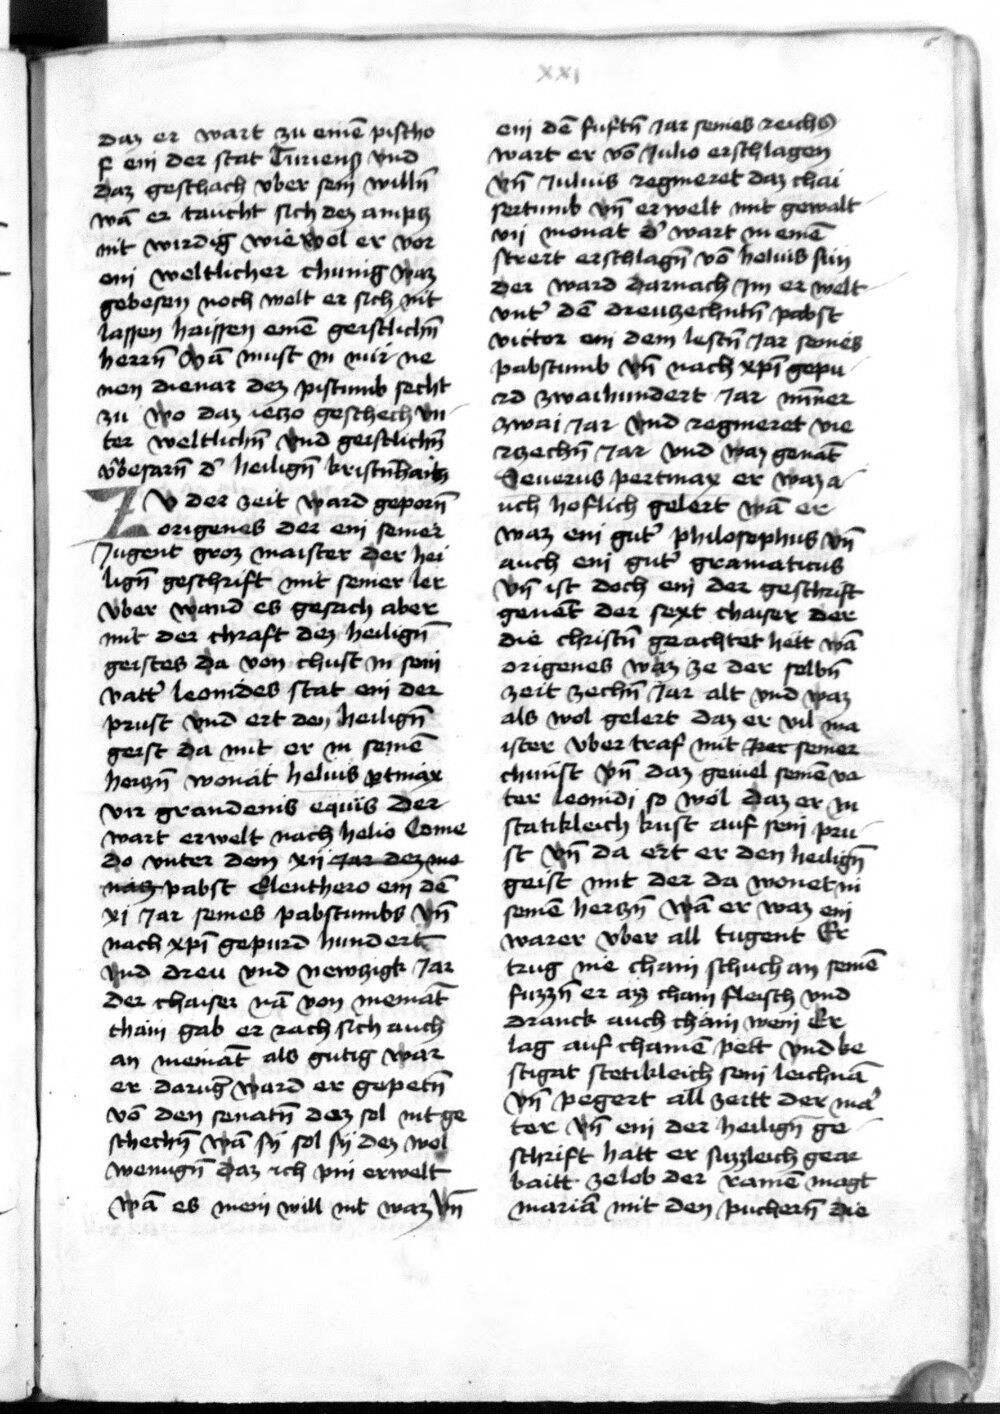 XXI
daz er wart zu einē pischo
f ein der stat Turiensz vnd
daz geschach vber sein willn̄
wā er taucht sich dez amptz
nit wirdig wie wol er vor
ein weltlicher chunig waz
gebesen noch wolt er sich nit
lassen haissen einē geistlichn̄
herrn̄ wā must in nür ne
nen dienar dez pistumb secht
zu wo daz ieczo geschech vn
ter weltlichn̄ vnd geistlichn̄
v̓besarn̄ d̓ heilign̄ kristnhait
Zv der zeit ward geporn̄
origenes der ein seiner
Jugent groz maister der hei
lign̄ geschrift mit seiner ler
vber wand es gesach aber
mit der chraft dez heilign̄
geistes da von chust in sein
vatt̓ leonides stat ein der
prust vnd ert den heilign̄
geist da mit er in seinē
herczn̄ wonāt heluis ptmax
vir grandenis equis der
wart erwelt nach helio Come
do vnter dem xij Jar dez mo
natz pabst Eleuthero ein dē
xj Jar seines pabstumbs vn̄
nach xp̄i gepurd hundert
vnd dreu vnd newczigk Jar
der chaiser nā von niemāt
chain gab er rach sich auch
an niemāt als gutig war
er darug̓ ward er gepetn̄
vō den senatn̄ dez sol nit ge
schechn̄ wā sy sol sy dez wol
wenugn̄ daz ich pin erwelt
wā es mein will nit waz vn̄
ein dē fuftn̄ Jar seines reichs
wart er vō Julio erschlagen
vn̄ Julius regnieret daz chai
sertumb vn̄ erwelt mit gewalt
vij monat d̓ wart in einē
streit erschlagn̄ vō heluis sun
der ward darnach Im erwelt
vnt̓ dē dreuzechntn̄ pabst
victor ein dem lestn̄ Jar seines
pabstumb vn̄ nach xp̄i gepu
rd zwaihundert Jar mīner
zwai Jar vnd regnieret vie
rzechn̄ Jar vnd waz genāt
Seuerus pertinax er waz a
uch hoflich gelert wā er
waz ein gut̓ philosophus vn̄
auch ein gut̓ gramaticus
vn̄ ist doch ein der geschrift
genēt der sext chaiser der
die christn̄ geachtet hett wā
origenes waz ze der selbn̄
zeit zechn̄ Jar alt vnd waz
als wol gelert daz er vil ma
ister vber traf mit seiner
chunst vn̄ daz geuiel seinē va
ter leonidi so wol daz er in
statikleich kust auf sein pru
st vn̄ da ert er den heilign̄
geist mit der da wonet in
seinē herczn̄ wā er waz ein
warer vber all tugent Er
trug nie chain schuch an seinē
fuzzn̄ er az chain fleisch vnd
dranck auch chain wein Er
lag auf chainē pett vnd be
stigat stetikleich sein leichnā
vn̄ pegert all zeitt der ma̓
ter vn̄ ein der heilign̄ ge
schrift hatt er suzzleich gear
baitt ze lob der rainē magt
mariā mit den puchern̄ die